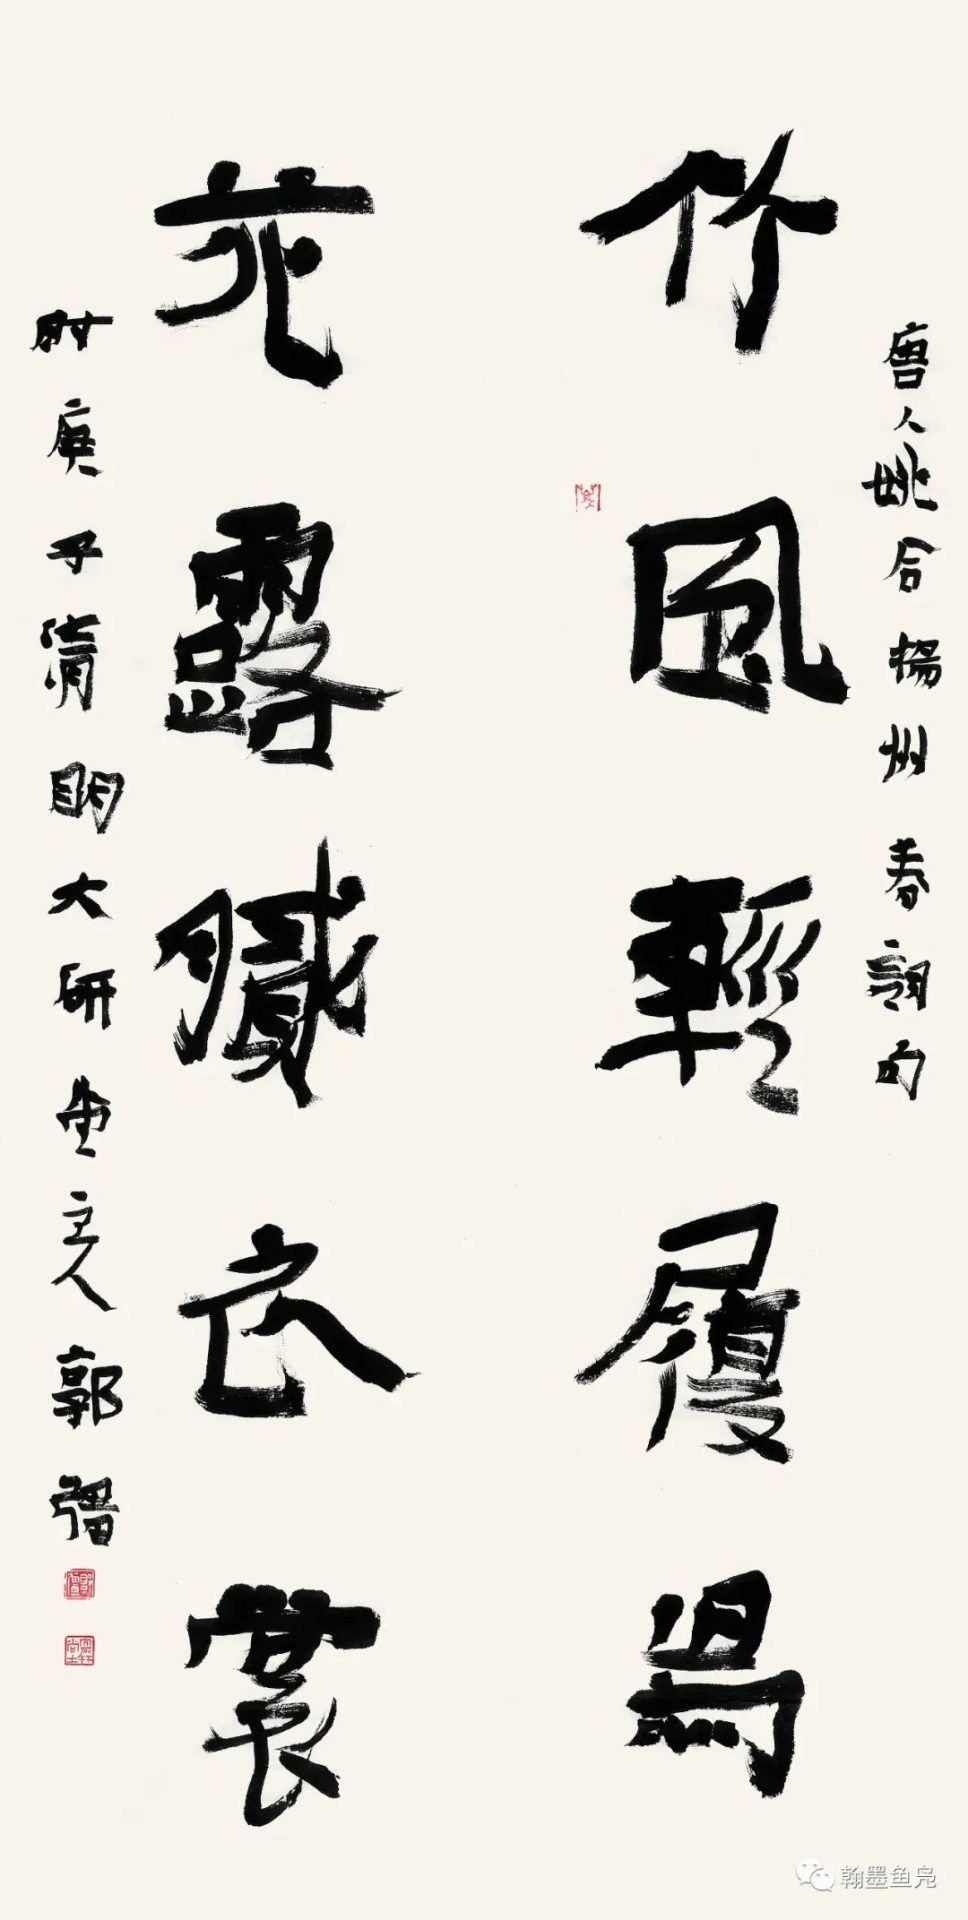 唐人姚合揚州春詞句
竹風輕履舄
花露膩衣裳
時庚子清明大研堂主人郭彊
翰墨鱼凫